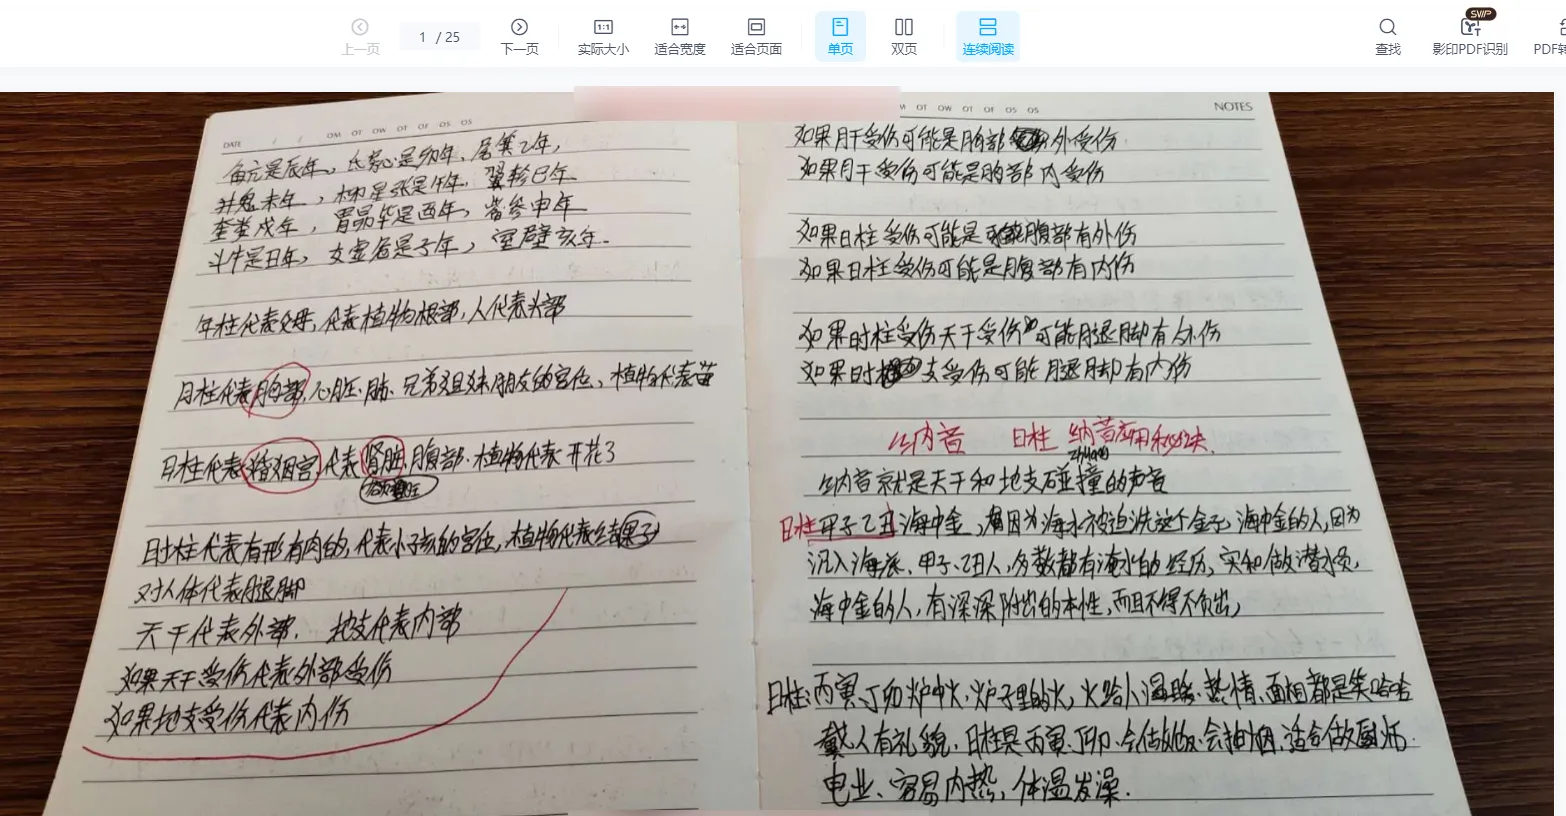 上一页
1 / 25
下一页
实际大小
适合宽度
适合页面
单页
双页
连续阅读
查找
SVIP
影印PDF识别
PDF转
DATE / /
OM OT OW OT OF OS OS
角亢是辰年、氐房心是卯年、尾箕乙年,
井鬼未年,柳星张是午年,翼轸巳年
奎娄戌年,胃昴毕是酉年,觜参申年
斗牛是丑年,女虚危是子年,室壁亥年.
年柱代表父母,代表植物根部,人代表头部
月柱代表胸部,心脏、肺、兄弟姐妹朋友的宫位、植物代表苗
日柱代表婚姻宫代表肾脏、腹部.植物代表开花了
时柱代表有形有肉的,代表小孩的宫位,植物代表结果子
对人体代表腿脚
天干代表外部, 地支代表内部
如果天干受伤代表外部受伤
如果地支受伤代表内伤
OT OW OT OF OS OS
NOTES
如果月干受伤可能是胸部外受伤
如果月干受伤可能是胸部内受伤
如果日柱受伤可能是腹部有外伤
如果日柱受伤可能是腹部有内伤
如果时柱受伤天干受伤可能腿脚有外伤
如果时支受伤可能腿脚有内伤
纳音 日柱 纳音应用秘诀.
zhuang
纳音就是天干和地支碰撞的声音
日柱甲子乙丑海中金,因为海水被迫洗这个金子,海中金的人,因为
沉入海底、甲子、乙丑人,多数都有淹水的经历,实和做潜水员,
海中金的人,有深深附出的本性,而且不得不负出,
日柱:丙寅丁卯炉中火.炉子里的火,火给人温暖.热情、面相都是笑哈哈
戴人有礼貌,日柱是丙寅、丁卯、会做饭、会抽烟、适合做厨师.
电业、容易内热,体温发燥.